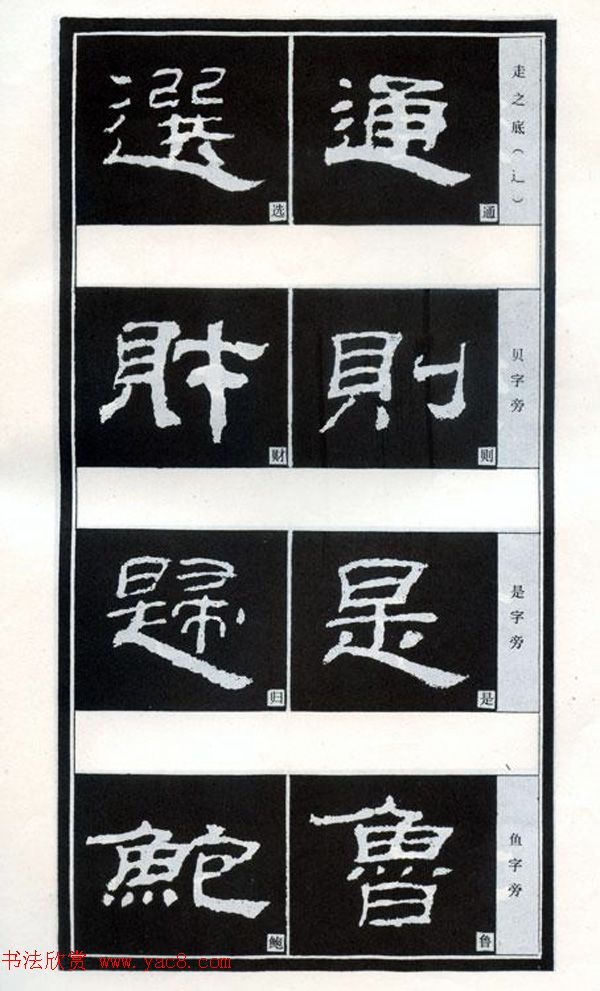 走之底（辶）
通 通
選 选
贝字旁
則 则
財 财
是字旁
是 是
歸 归
鱼字旁
魯 鲁
鮑 鲍
书法欣赏 www.yac8.com